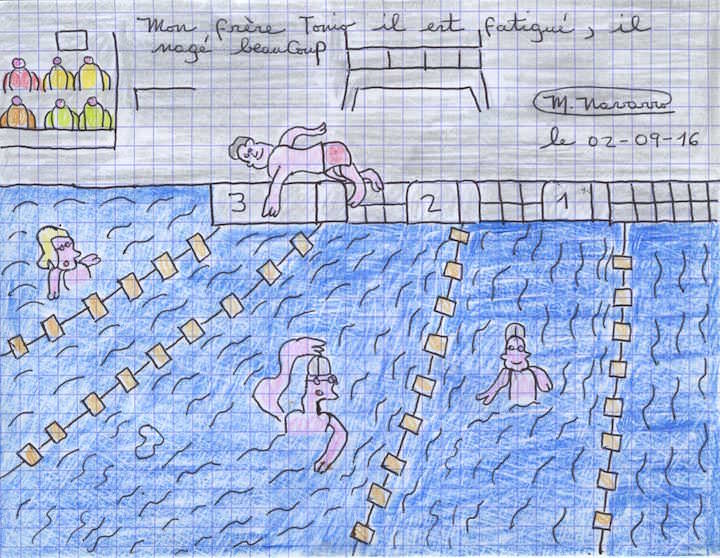 Mon frère Toniq il est fatigué, il
nagé beaucoup
M. Navarro
le 02-09-16
3 2 1